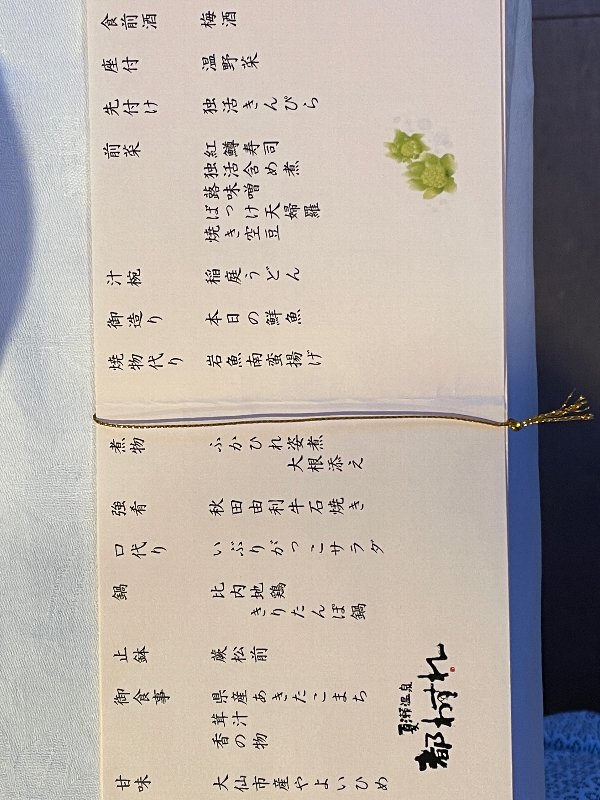 食前酒　梅酒
座付　温野菜
先付け　独活きんぴら
前菜　紅鱒寿司
独活含め煮
蕗味噌
ばっけ天婦羅
焼き空豆
汁椀　稲庭うどん
御造り　本日の鮮魚
焼物代り　岩魚南蛮揚げ
煮物　ふかひれ姿煮
大根添え
強肴　秋田由利牛石焼き
口代り　いぶりがっこサラダ
鍋　比内地鶏
きりたんぽ鍋
止鉢　蕨松前
御食事　県産あきたこまち
茸汁
香の物
甘味　大仙市産やよいひめ
夏瀬温泉
都わすれ